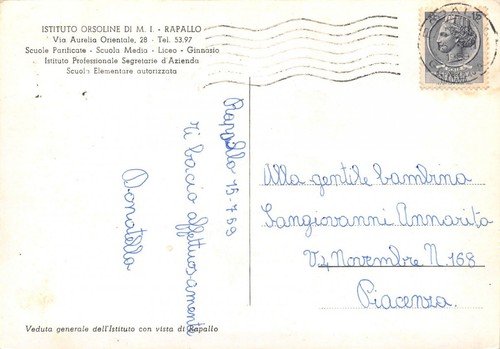 ISTITUTO ORSOLINE DI M. I. - RAPALLO
Via Aurelia Orientale, 28 - Tel. 53.97
Scuole Parificate - Scuola Media - Liceo - Ginnasio
Istituto Professionale Segretarie d'Azienda
Scuola Elementare autorizzata
Rapallo 15-7-59
Ti bacio affettuosamente
Donatella
Alla gentile bambina
Sangiovanni Annarita
V. 4 Novembre N. 168
Piacenza.
Veduta generale dell'Istituto con vista di Rapallo